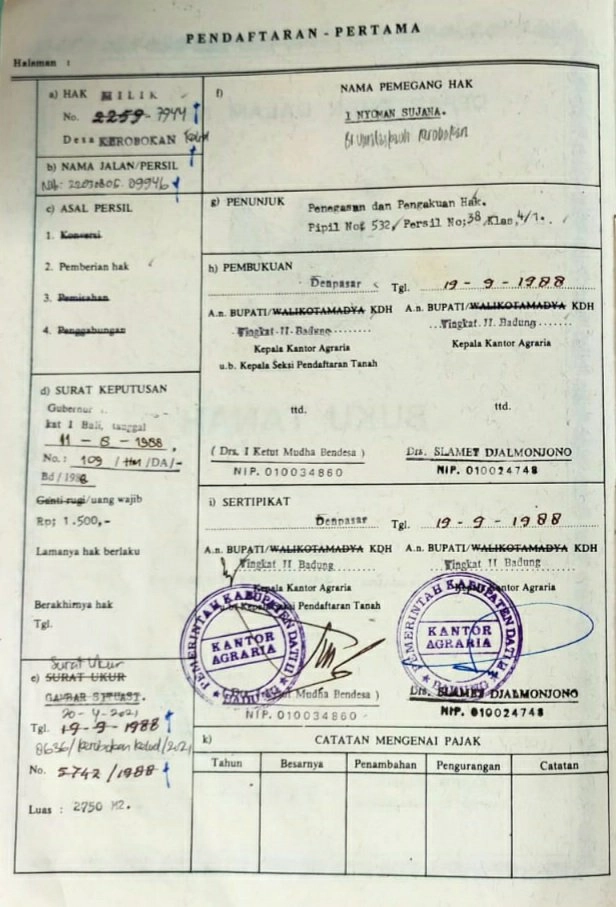 PENDAFTARAN - PERTAMA
Halaman :
a) HAK MILIK
No. 2259 - 7944
Desa KEROBOKAN Kelod
b) NAMA JALAN/PERSIL
Nib: 22030806. 09946
c) ASAL PERSIL
1. Konversi
2. Pemberian hak
3. Pemisahan
4. Penggabungan
d) SURAT KEPUTUSAN
Gubernur
kat I Bali, tanggal
11 - 8 - 1988,
No.: 109 / HM /DA/-
Bd/1988
Ganti rugi/uang wajib
Rp; 1.500,-
Lamanya hak berlaku
Berakhirnya hak
Tgl.
Surat Ukur
e) SURAT UKUR
GAMBAR SITUASI.
20-4-2021
Tgl. 19-9-1988
8636/Kerobokan Kelod/2021
No. 5742/1988
Luas : 2750 M2.
f) NAMA PEMEGANG HAK
I NYOMAN SUJANA.
Kerobokan
g) PENUNJUK Penegasan dan Pengakuan Hak.
Pipil No: 532, Persil No; 38, Klas, 4/1.
h) PEMBUKUAN
Denpasar Tgl. 19 - 9 - 1988
A.n. BUPATI/WALIKOTAMADYA KDH A.n. BUPATI/WALIKOTAMADYA KDH
Tingkat II Badung Tingkat II. Badung
Kepala Kantor Agraria Kepala Kantor Agraria
u.b. Kepala Seksi Pendaftaran Tanah
ttd. ttd.
( Drs. I Ketut Mudha Bendesa ) Drs. SLAMET DJALMONJONO
NIP. 010034860 NIP. 010024748
i) SERTIPIKAT
Denpasar Tgl. 19 - 9 - 1988
A.n. BUPATI/WALIKOTAMADYA KDH A.n. BUPATI/WALIKOTAMADYA KDH
Tingkat II Badung Tingkat II Badung
Kepala Kantor Agraria Kepala Kantor Agraria
u.b. Kepala Seksi Pendaftaran Tanah
PEMERINTAH KABUPATEN DATI II
KANTOR
AGRARIA
BADUNG
PEMERINTAH KABUPATEN DATI II
KANTOR
AGRARIA
BADUNG
Mudha Bendesa ) Drs. SLAMET DJALMONJONO
NIP. 010034860 NIP. 010024748
k) CATATAN MENGENAI PAJAK
Tahun Besarnya Penambahan Pengurangan Catatan